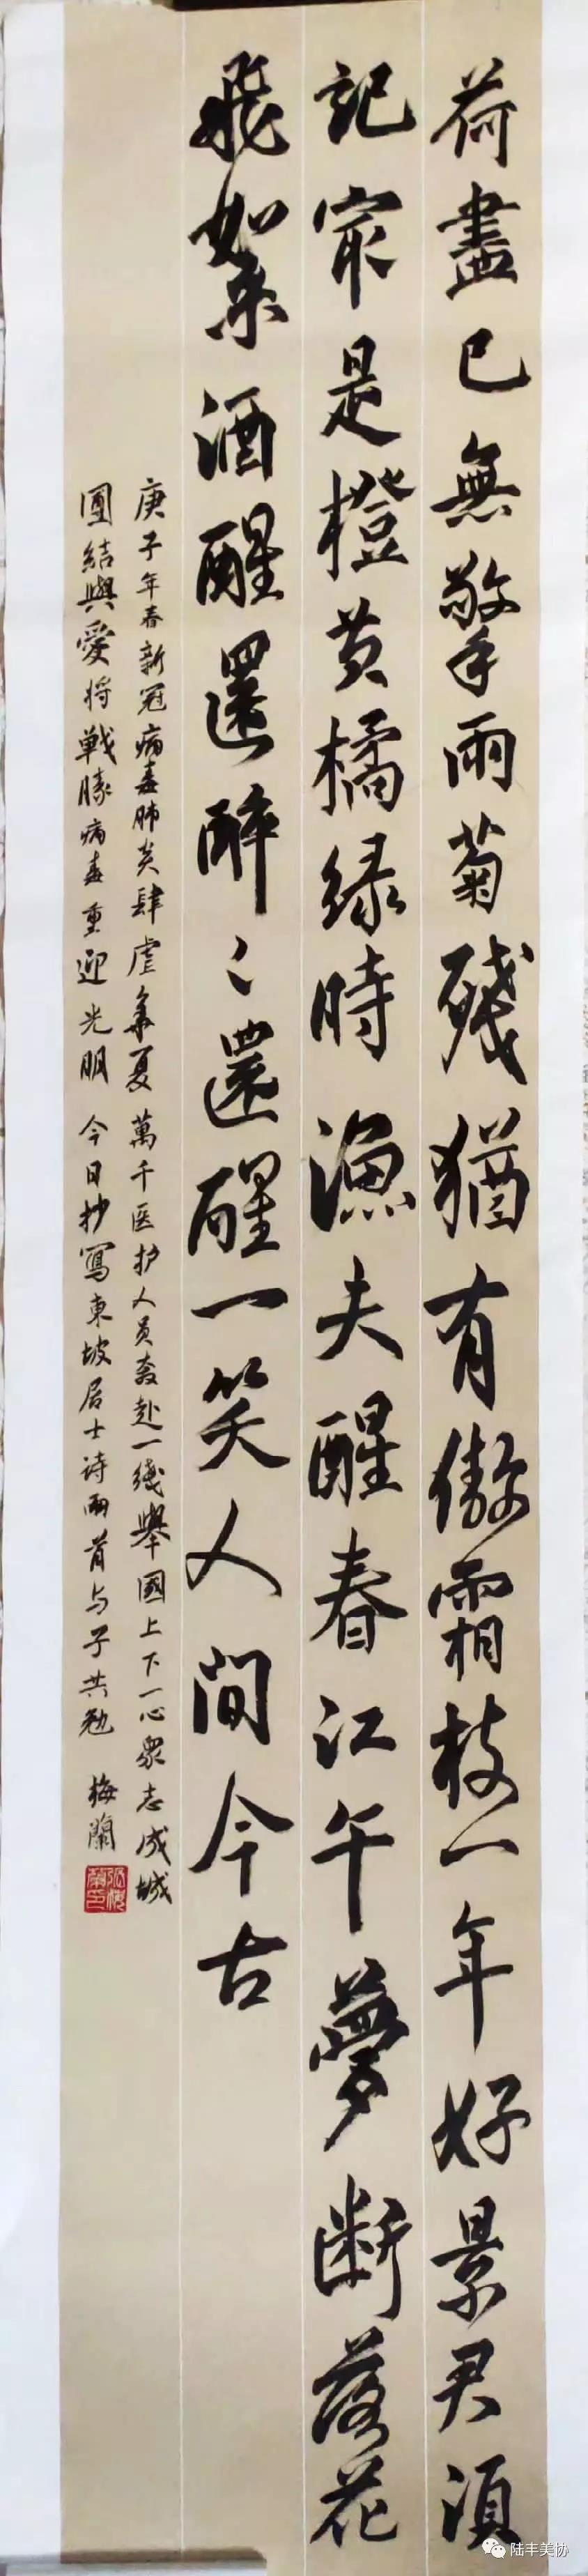 荷盡已無擎雨菊殘猶有傲霜枝一年好景君須
記宲是橙黄橘绿時漁夫醒春江午夢断落花
飛絮酒醒還醉〻還醒一笑人間今古
庚子年春新冠病毒肺炎肆虐華夏萬千医护人员奔赴一线舉國上下一心衆志成城
團結與愛将戰勝病毒重迎光明 今日抄寫東坡居士诗兩首与子共勉 梅蘭
陆丰美协